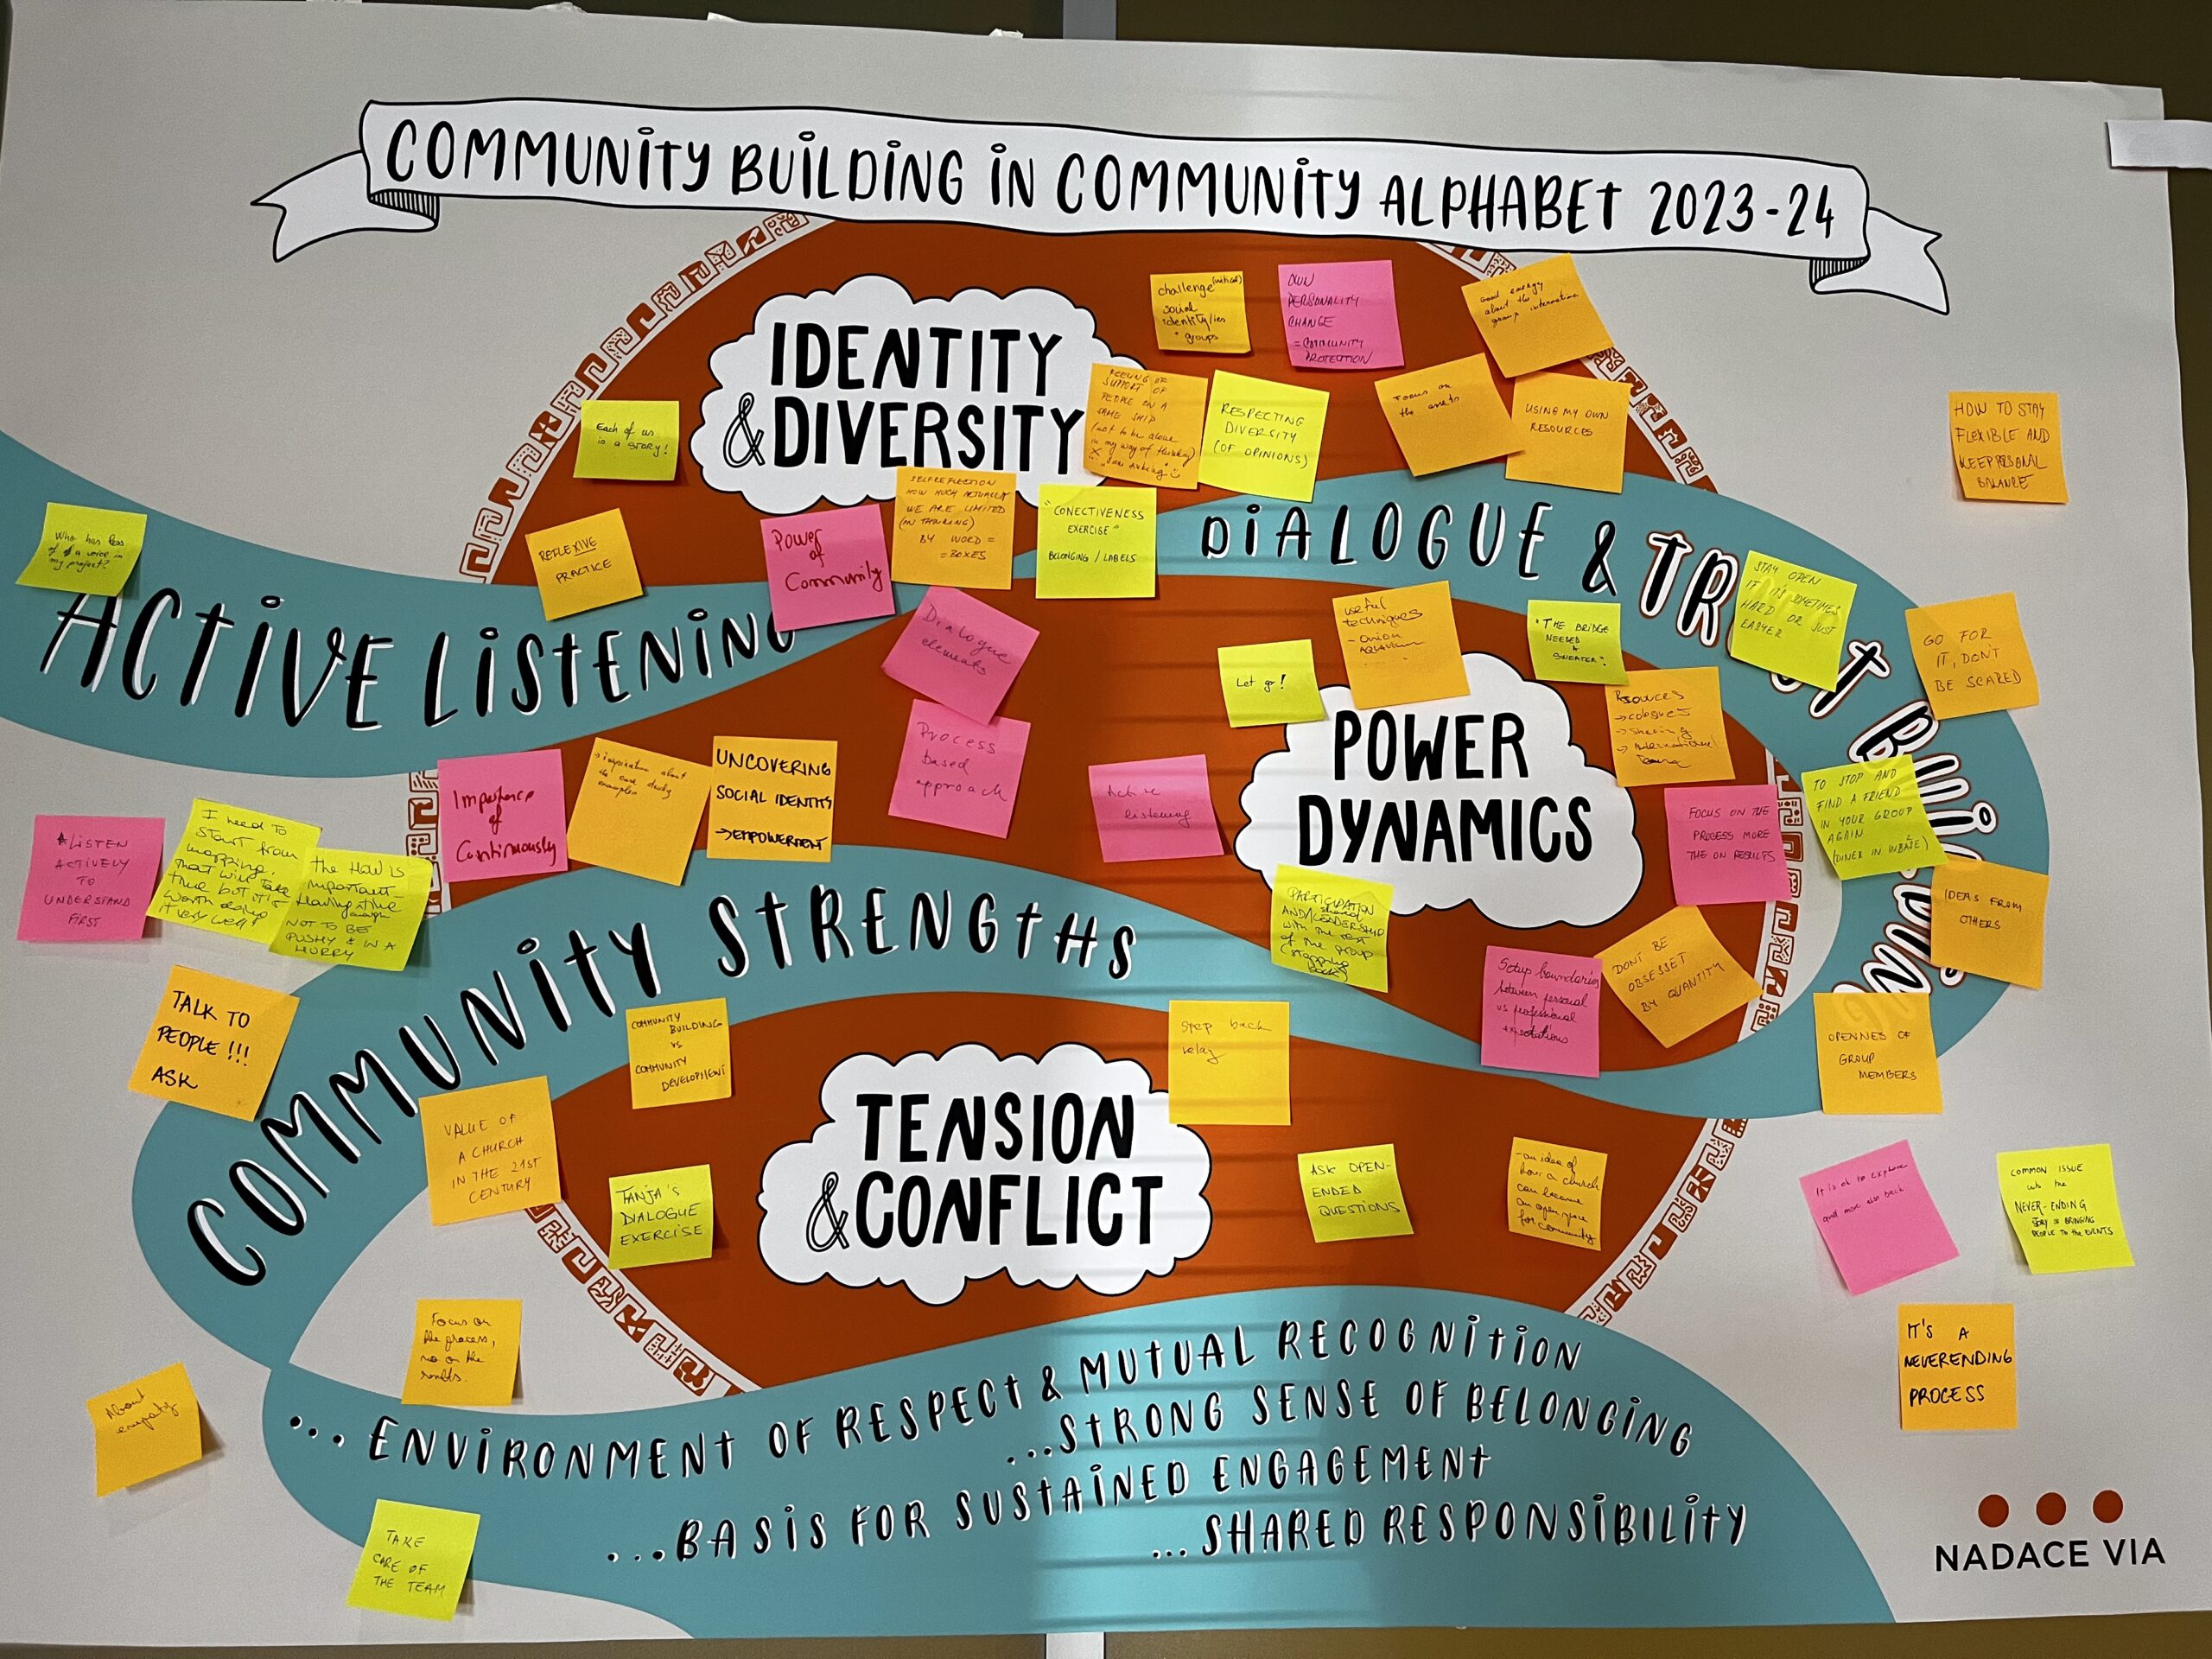 COMMUNITY BUILDING IN COMMUNITY ALPHABET 2023-24
IDENTITY
& DIVERSITY
challenge (critical)
social
identity/ies
groups
OWN
PERSONALITY
CHANGE
= COMMUNITY
PROTECTION
Good energy
about the
group interaction
Each of us
is a STORY!
FEELING OF
SUPPORT OF
PEOPLE ON A
SAME SHIP
(not to be alone
in my way of thinking)
RESPECTING
DIVERSITY
(OF OPINIONS)
Focus on
the assets
USING MY OWN
RESOURCES
HOW TO STAY
FLEXIBLE AND
KEEP PERSONAL
BALANCE
SELFREFLECTION
HOW MUCH ACTUALLY
WE ARE LIMITED
(IN THINKING)
BY WORD =
= BOXES
"CONECTIVENESS
EXERCISE"
BELONGING / LABELS
REFLEXIVE
PRACTICE
Power
of
Community
Who has less
of a voice in
my project?
ACTIVE LISTENING
DIALOGUE & TRUST BUILDING
STAY OPEN
IF IT'S SOMETIMES
HARD OR JUST
LAYER
GO FOR
IT, DON'T
BE SCARED
Dialogue
elements
Useful
techniques
- onion
"THE BRIDGE
NEEDED
A
SWEATER"
Let go!
→ sharing
→ international
POWER
DYNAMICS
Process
based
approach
Active
listening
Importance
of
Continuously
→ inspiration about
the case study
examples
UNCOVERING
SOCIAL IDENTITY
→ EMPOWERMENT
FOCUS ON THE
PROCESS MORE
THE ON RESULTS
TO STOP AND
FIND A FRIEND
IN YOUR GROUP
AGAIN
IDEAS FROM
OTHERS
LISTEN
ACTIVELY
TO
UNDERSTAND
FIRST
I need to
start from
mapping.
that will take
time but it's
worth doing
it very well!
the HOW is
important
Having time
enough
NOT TO BE
PUSHY & IN A
HURRY
TALK TO
PEOPLE !!!
ASK
COMMUNITY STRENGTHS
PARTICIPATION
AND/shared LEADERSHIP
with the rest
of the group
(stepping
back)
Setup boundaries
between personal
vs professional
expectations
DONT BE
OBSESSET
BY QUANTITY
OPENNES OF
GROUP
MEMBERS
COMMUNITY
BUILDING
vs
COMMUNITY
DEVELOPMENT
Step back
relax
VALUE OF
A CHURCH
IN THE 21ST
CENTURY
TENSION
& CONFLICT
TANJA'S
DIALOGUE
EXERCISE
ASK OPEN-
ENDED
QUESTIONS
- an idea of
how a church
can become
an open space
for community
It is ok to explore
and move also back
COMMON ISSUE
NEVER-ENDING
STORY = BRINGING
PEOPLE TO THE EVENTS
Focus on
the process,
no on the
results.
IT'S A
NEVERENDING
PROCESS
About
empaty
... ENVIRONMENT OF RESPECT & MUTUAL RECOGNITION
...STRONG SENSE OF BELONGING
...BASIS FOR SUSTAINED ENGAGEMENT
... SHARED RESPONSIBILITY
TAKE
CARE OF
THE TEAM
NADACE VIA